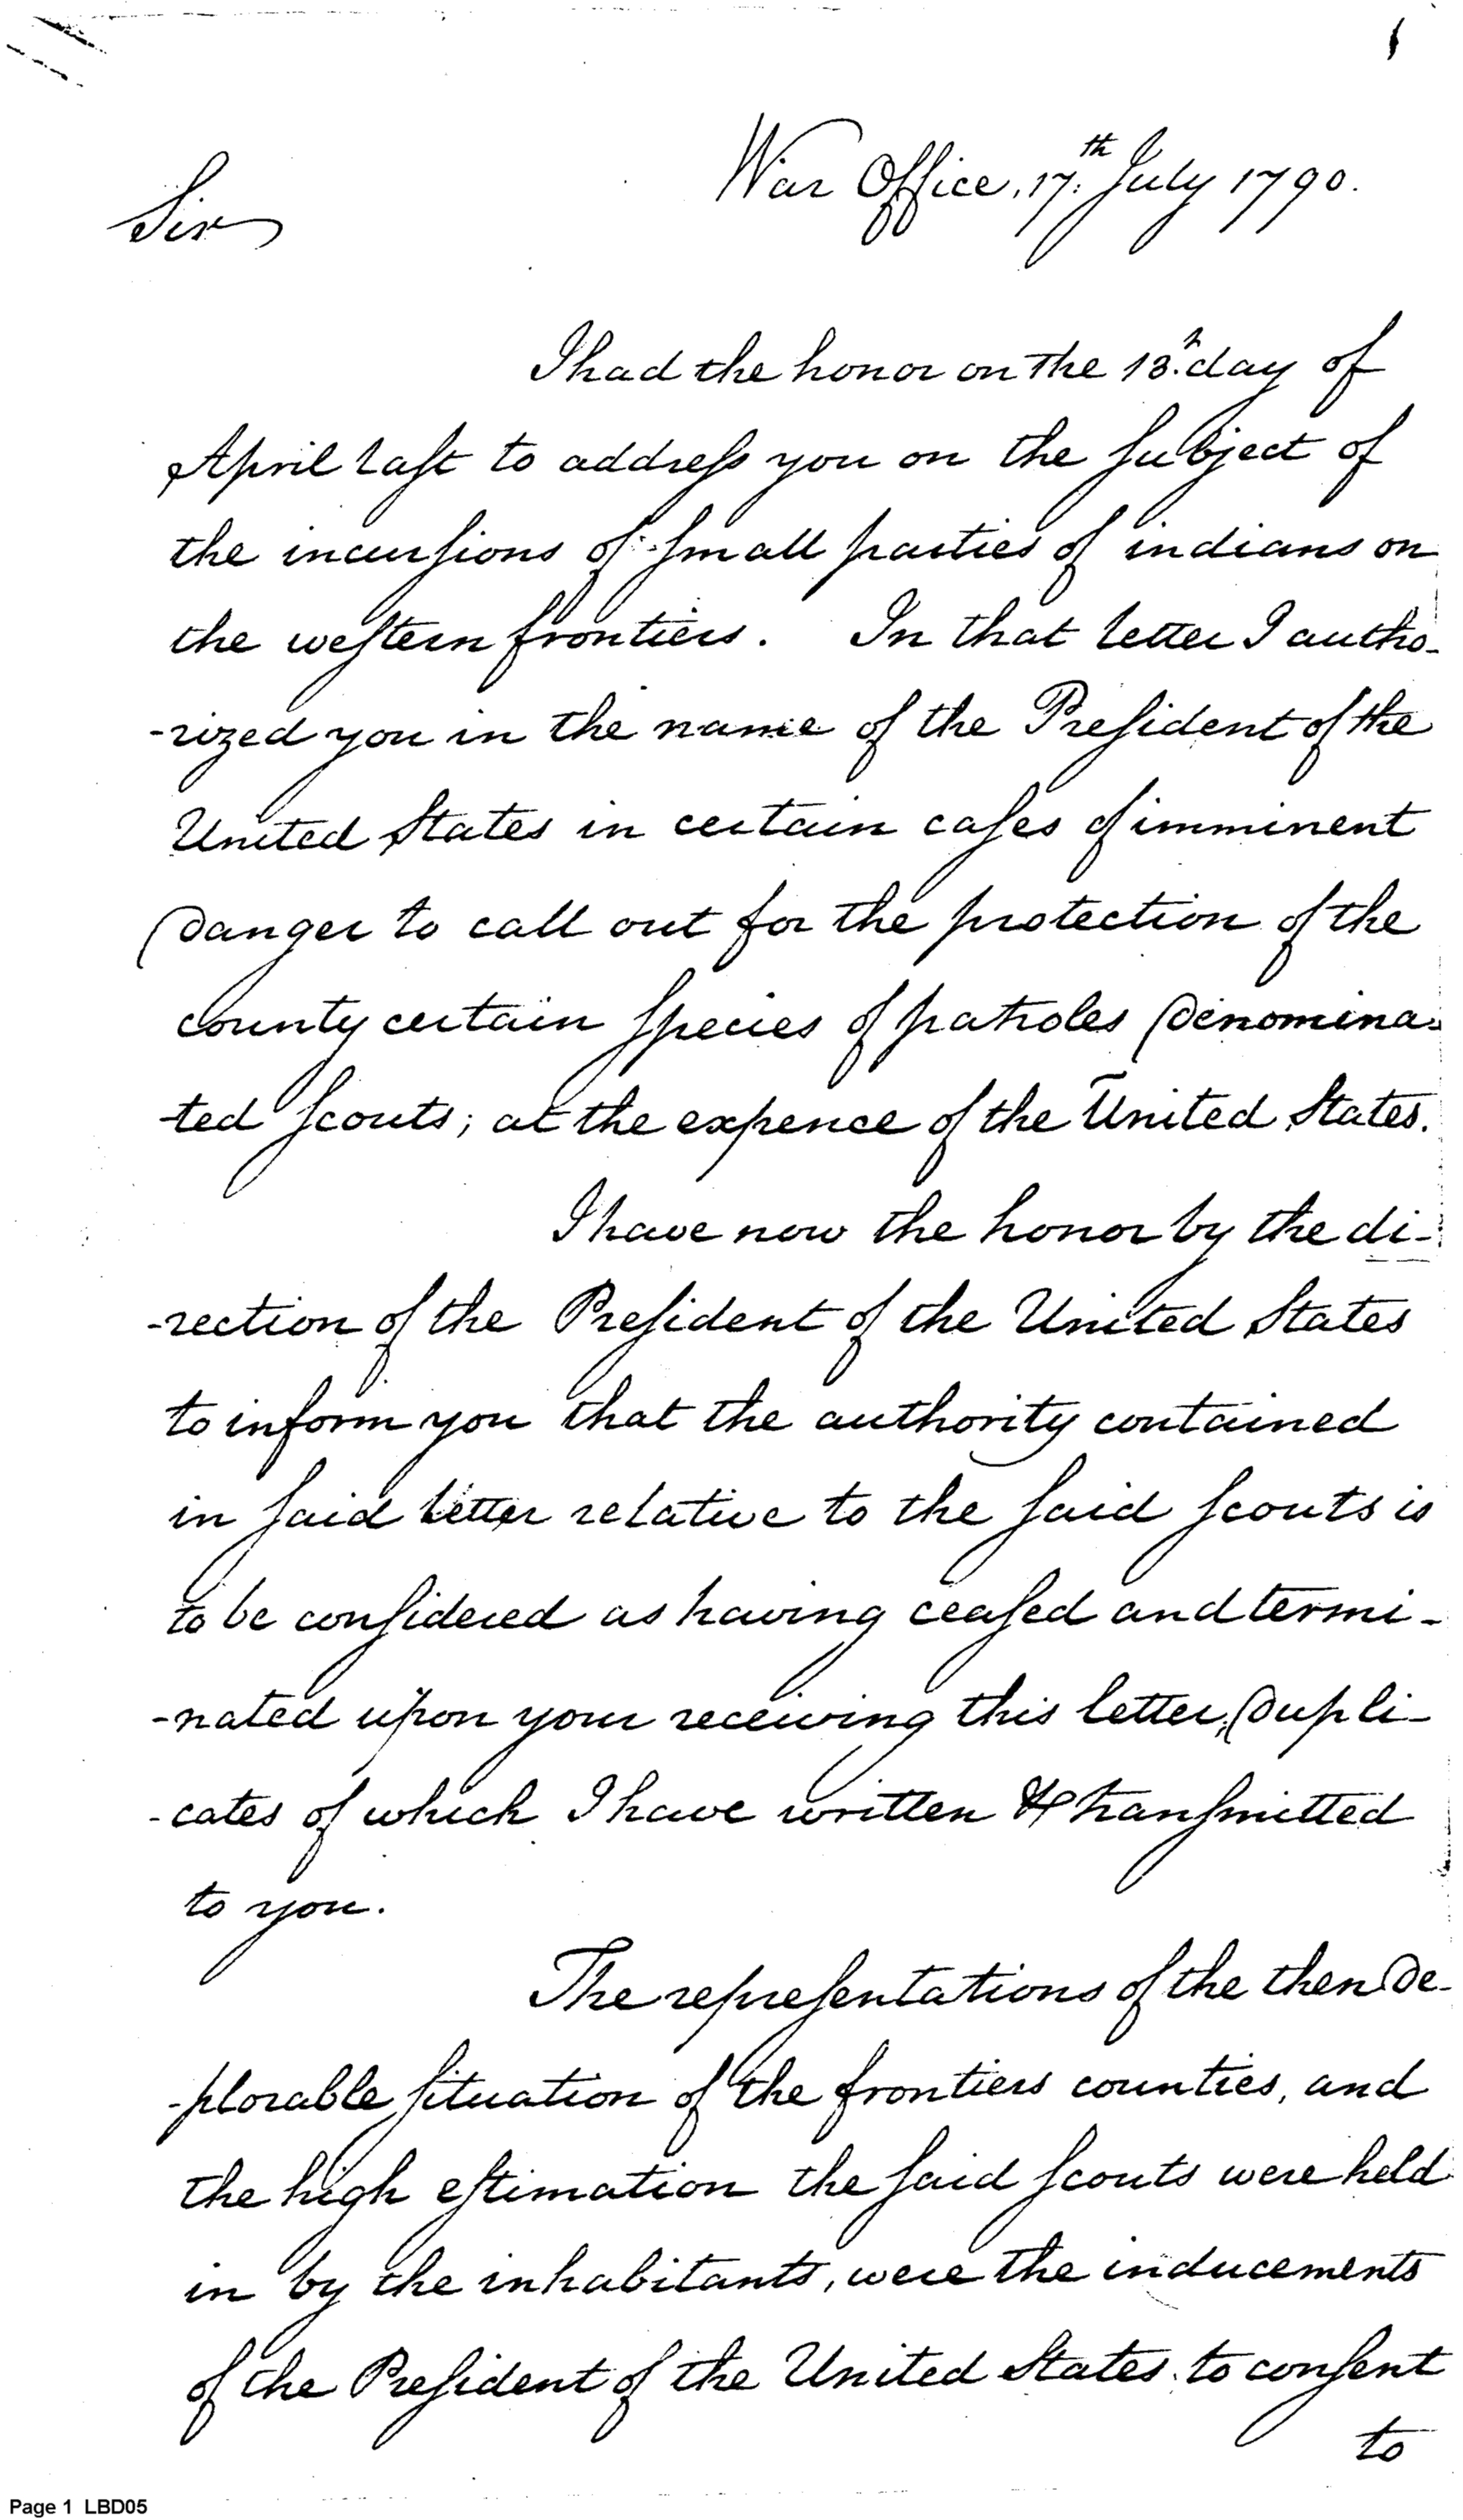 War Office, 17th July 1790.
Sir
I had the honor on the 13th day of
April last to address you on the subject of
the incursions of small parties of indians on
the western frontiers. In that letter I autho-
-rized you in the name of the President of the
United States in certain cases of imminent
Danger to call out for the protection of the
county certain species of patroles Denomina-
-ted scouts; at the expence of the United States.
I have now the honor by the di-
-rection of the President of the United States
to inform you that the authority contained
in said letter relative to the said scouts is
to be considered as having ceased and termi-
-nated upon your receiving this letter, Dupli-
-cates of which I have written & transmitted
to you.
The representations of the then De-
-plorable situation of the frontiers counties, and
the high estimation the said scouts were held
in by the inhabitants, were the inducements
of the President of the United States to consent
to
Page 1 LBD05